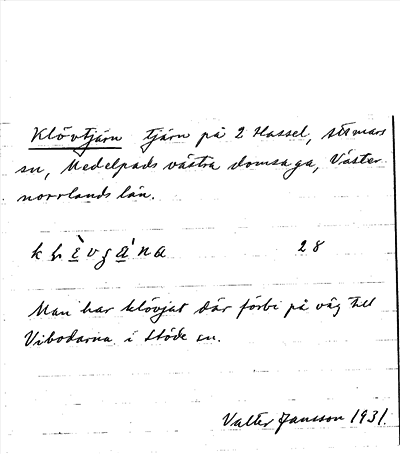 Klövtjärn tjärn på 2 Hassel, Attmars
sn, Medelpads västra domsaga, Väster
norrlands län.
28
Man har klövjat där förbi på väg till
Vibodarna i Stöde sn.
Valter Jansson 1931.